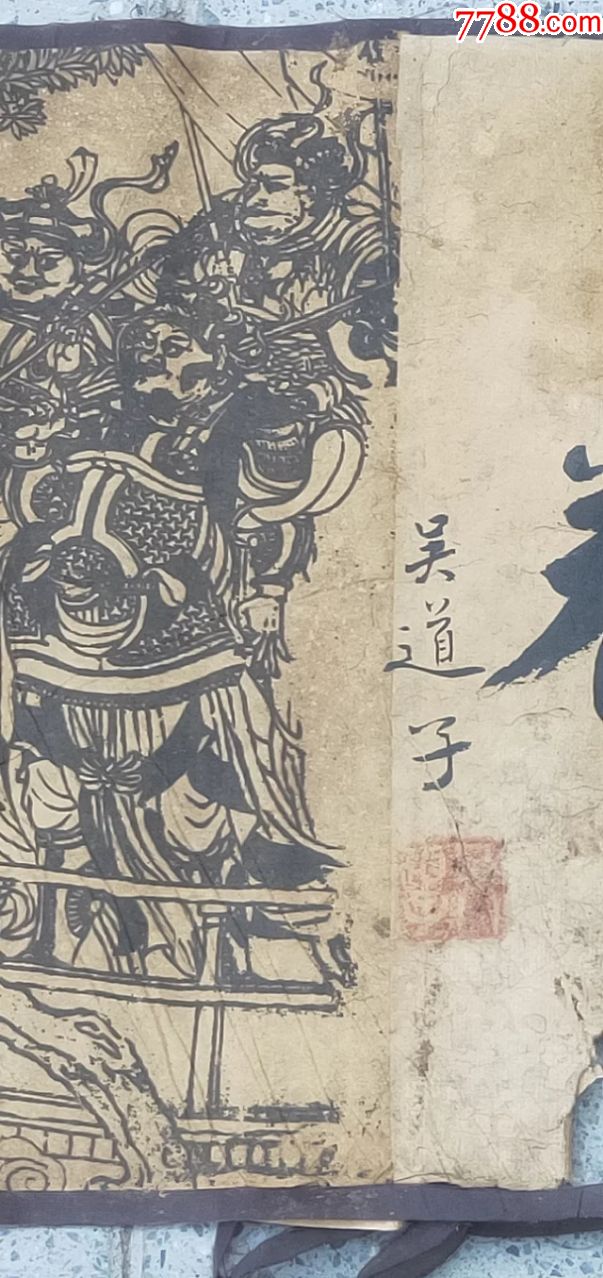 7788.com
吴道子